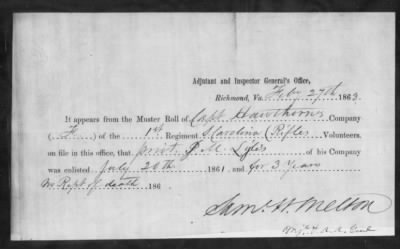 Adjutant and Inspector General's Office,
Richmond, Va. Feby 27th 1863.
It appears from the Muster Roll of Capt. Hawthorn's Company
( F ) of the 1st Regiment S Carolina (Rifles Volunteers.
on file in this office, that privt J M. Lyles of his Company
was enlisted July 20th 1861 and for 3 Years
No Rept. of death 186
Saml. W. Melton
Maj. & A. A. Genl